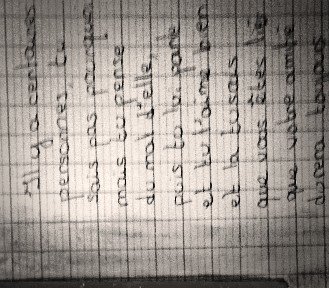 Il y a certaines
personnes, tu
sais pas pourquoi
mais tu pense
du mal d'elle,
puis tu lui parle
et tu l'aime bien
et là tu sais
que vous êtes liés
que votre amitié
durera toujours